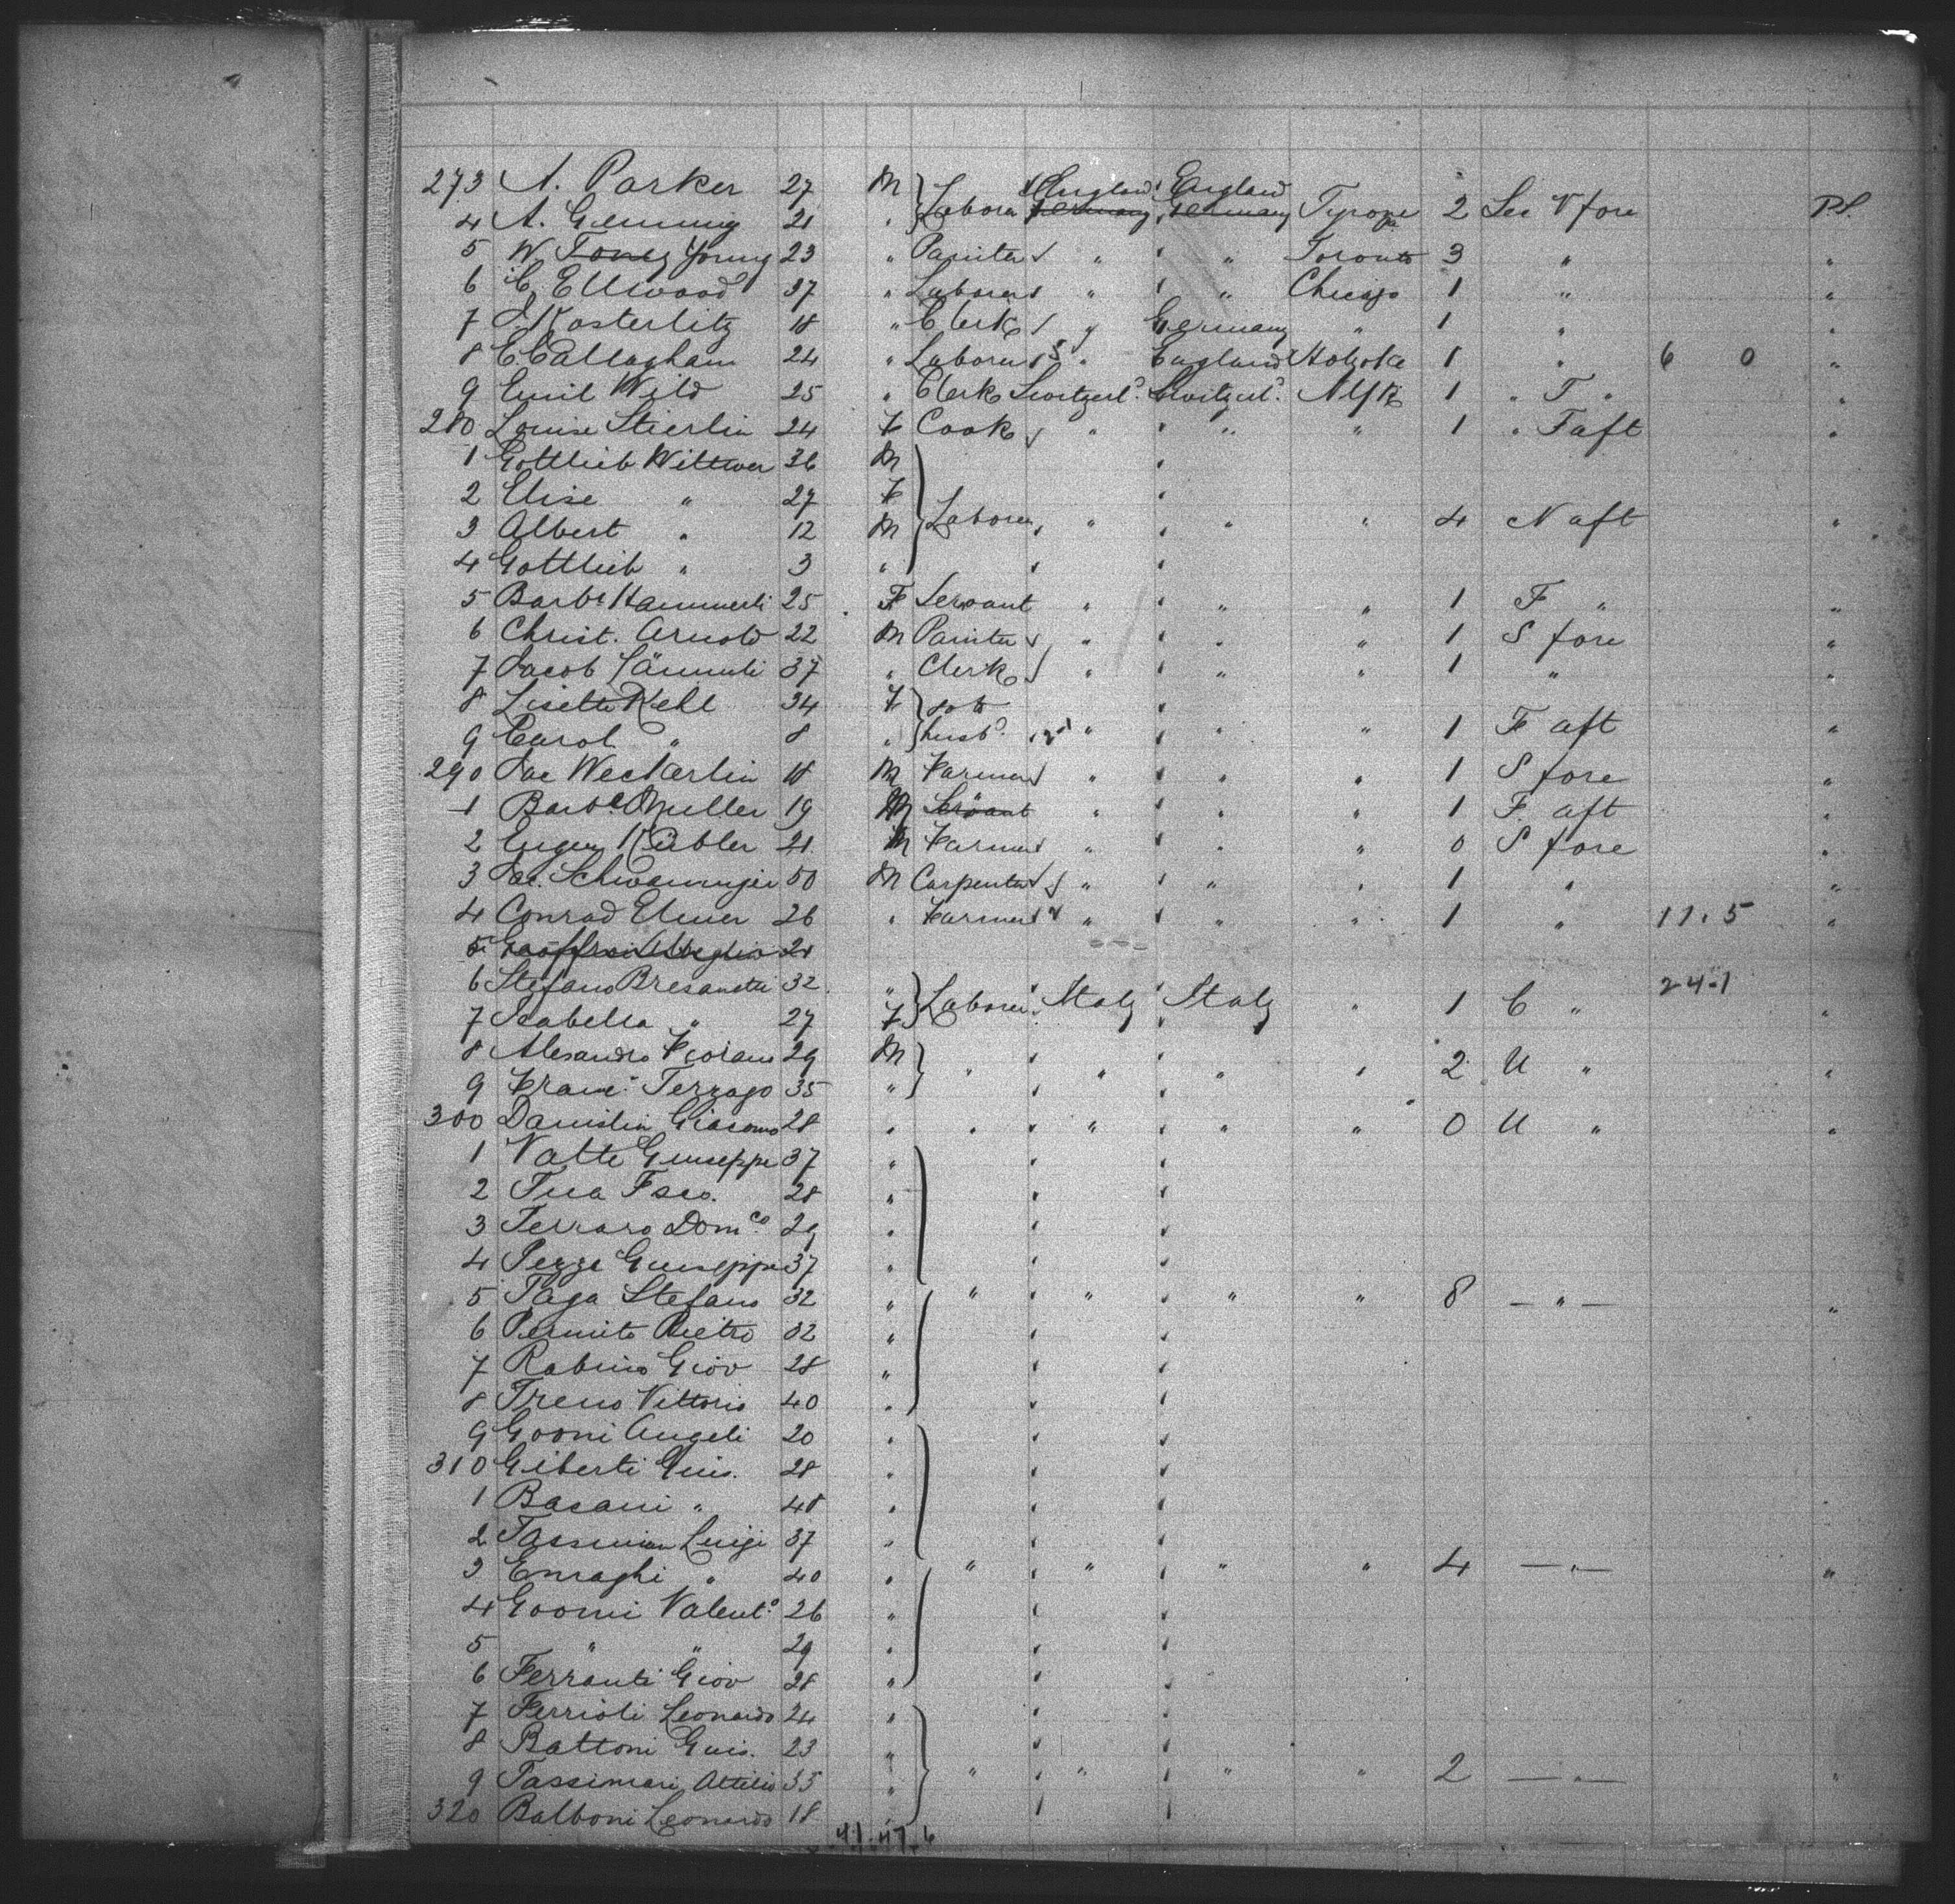 273 A. Parker 27 M England England
4 A. Gemmig 21 " Laborer Germany Germany Tyrone Pa 2 Sec V fore P.S.
5 W. Toney Young 23 " Painter " " Toronto 3 " "
6 C. Ellwood 37 " Laborer " " Chicago 1 " "
7 J. Kosterlitz 18 " Clerk " Germany " 1 " "
8 C Callagham 24 " Laborer " England Holyoke 1 " 6 0 "
9 Emil Wild 25 " Clerk Switzerld. Switzerld. N Yk 1 " T " "
280 Louise Stierlin 24 F Cook " " " 1 " F aft "
1 Gottlieb Wittwer 36 M
2 Elise " 27 F
3 Albert " 12 M Laborer " " " 4 N aft "
4 Gottlieb " 3 "
5 Barbe Hammerli 25 F Servant " " " 1 F " "
6 Christ. Arnold 22 M Painter " " " 1 S fore "
7 Jacob Lämmli 37 " Clerk " " " 1 " "
8 Lisette Kehl 34 F } go to
9 Carol " 8 " } husbd. " " " 1 F aft "
290 Jac Weckerlin 18 M Farmer " " " 1 S fore "
1 Barbe. Muller 19 M Servant " " " 1 F. aft "
2 Eugen Kübler 21 M Farmer " " " 0 S fore "
3 Jac. Schwaninger 50 M Carpenter " " " 1 " "
4 Conrad Elmer 26 " Farmer " " " 1 " 11. 5 "
5 21
6 Stefano Bresanetti 32 " 24-1
7 Isabella " 27 F Laborer Italy Italy " 1 C " "
8 Alesandro Fiorani 29 M
9 Franc. Terzago 35 " " " " " 2 U " "
300 Danislin Giacomo 28 " " " " " 0 U " "
1 Vatte Guiseppe 37 "
2 Tua Fsco. 28 "
3 Ferraro Domco. 29 "
4 Pezze Guiseppe 37 "
5 Taga Stefano 32 " " " " " 8 — " — "
6 Permito Pietro 32 "
7 Rabino Giov 28 "
8 Treno Vittorio 40 "
9 Govoni Angeli 20 "
310 Giberti Guis. 28 "
1 Bacani " 48 "
2 Tassinian Luigi 37 "
3 Enraghi " 40 " " " " " 4 — " — "
4 Govoni Valento 26 "
5 " " 29 "
6 Ferranti Giov 28 "
7 Ferrioli Leonardo 24 "
8 Battoni Guis. 23 "
9 Tassimari Attilio 35 " " " " " 2 — " — "
320 Balboni Leonardo 18 "
41. 47. 6